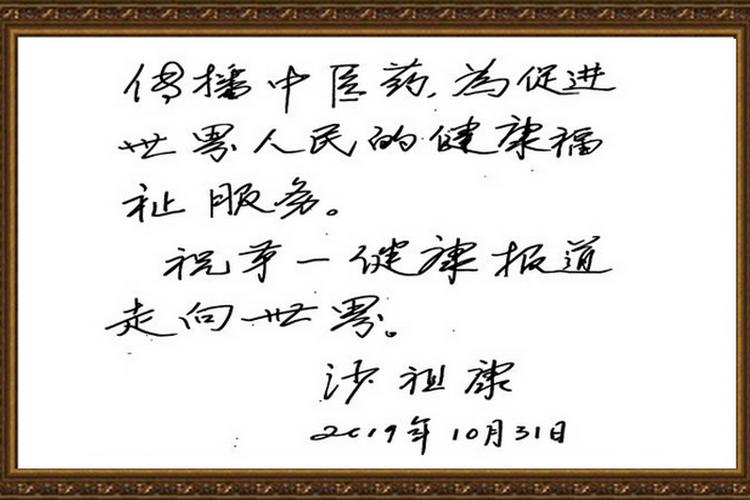 传播中医药,為促进
世界人民的健康福
祉服务。
祝第一健康报道
走向世界。
沙祖康
2019年10月31日